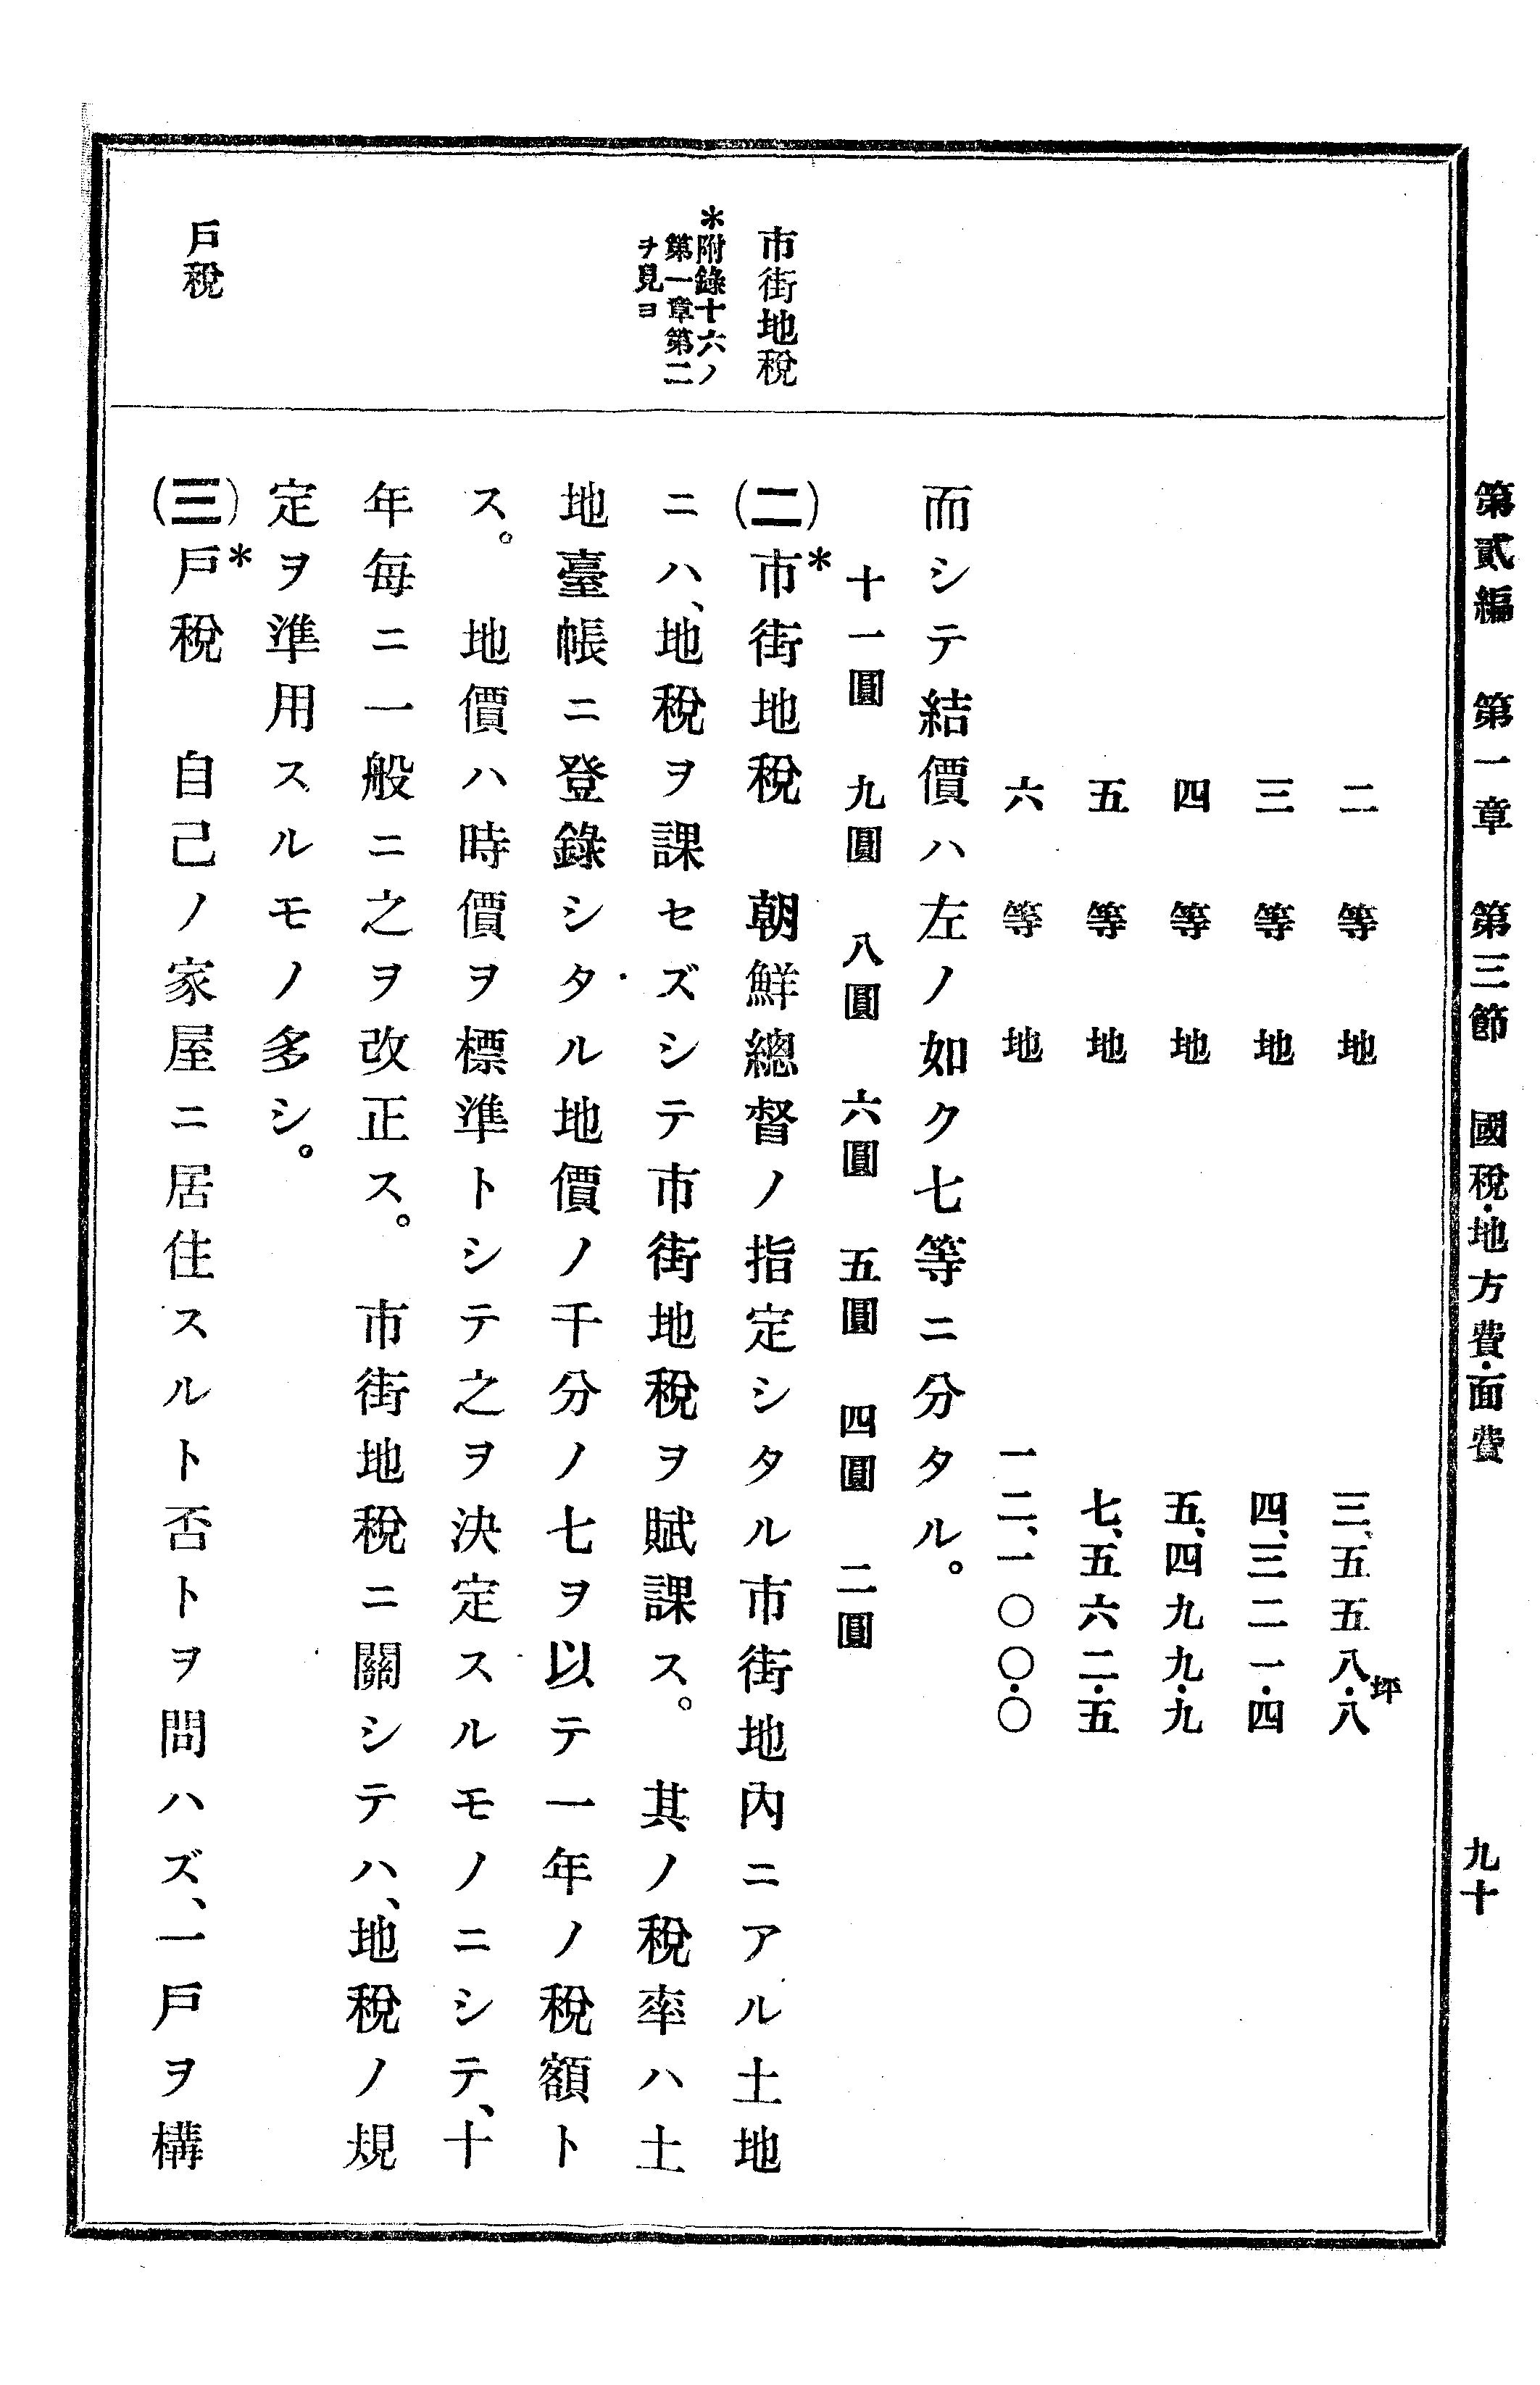 第貳編　第一章　第三節　國稅・地方費・面費　九十
二等地　三、五五八・八坪
三等地　四、三二一・四
四等地　五、四九九・九
五等地　七、五六二・五
六等地　一二、一〇〇・〇
而シテ結價ハ左ノ如ク七等ニ分タル。
十一圓　九圓　八圓　六圓　五圓　四圓　二圓
市街地稅
(二)*市街地稅　朝鮮總督ノ指定シタル市街地內ニアル土地
*附錄十六ノ
第一章第二
ヲ見ヨ
ニハ、地稅ヲ課セズシテ市街地稅ヲ賦課ス。其ノ稅率ハ土
地臺帳ニ登錄シタル地價ノ千分ノ七ヲ以テ一年ノ稅額ト
ス。地價ハ時價ヲ標準トシテ之ヲ決定スルモノニシテ、十
年每ニ一般ニ之ヲ改正ス。市街地稅ニ關シテハ、地稅ノ規
定ヲ準用スルモノ多シ。
戶稅
(三)*戶稅　自己ノ家屋ニ居住スルト否トヲ問ハズ、一戶ヲ構